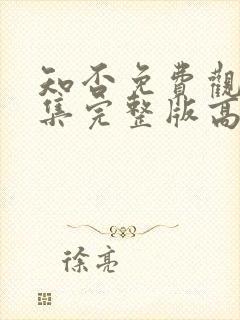 知否免費觀
集完整版高
徐亮